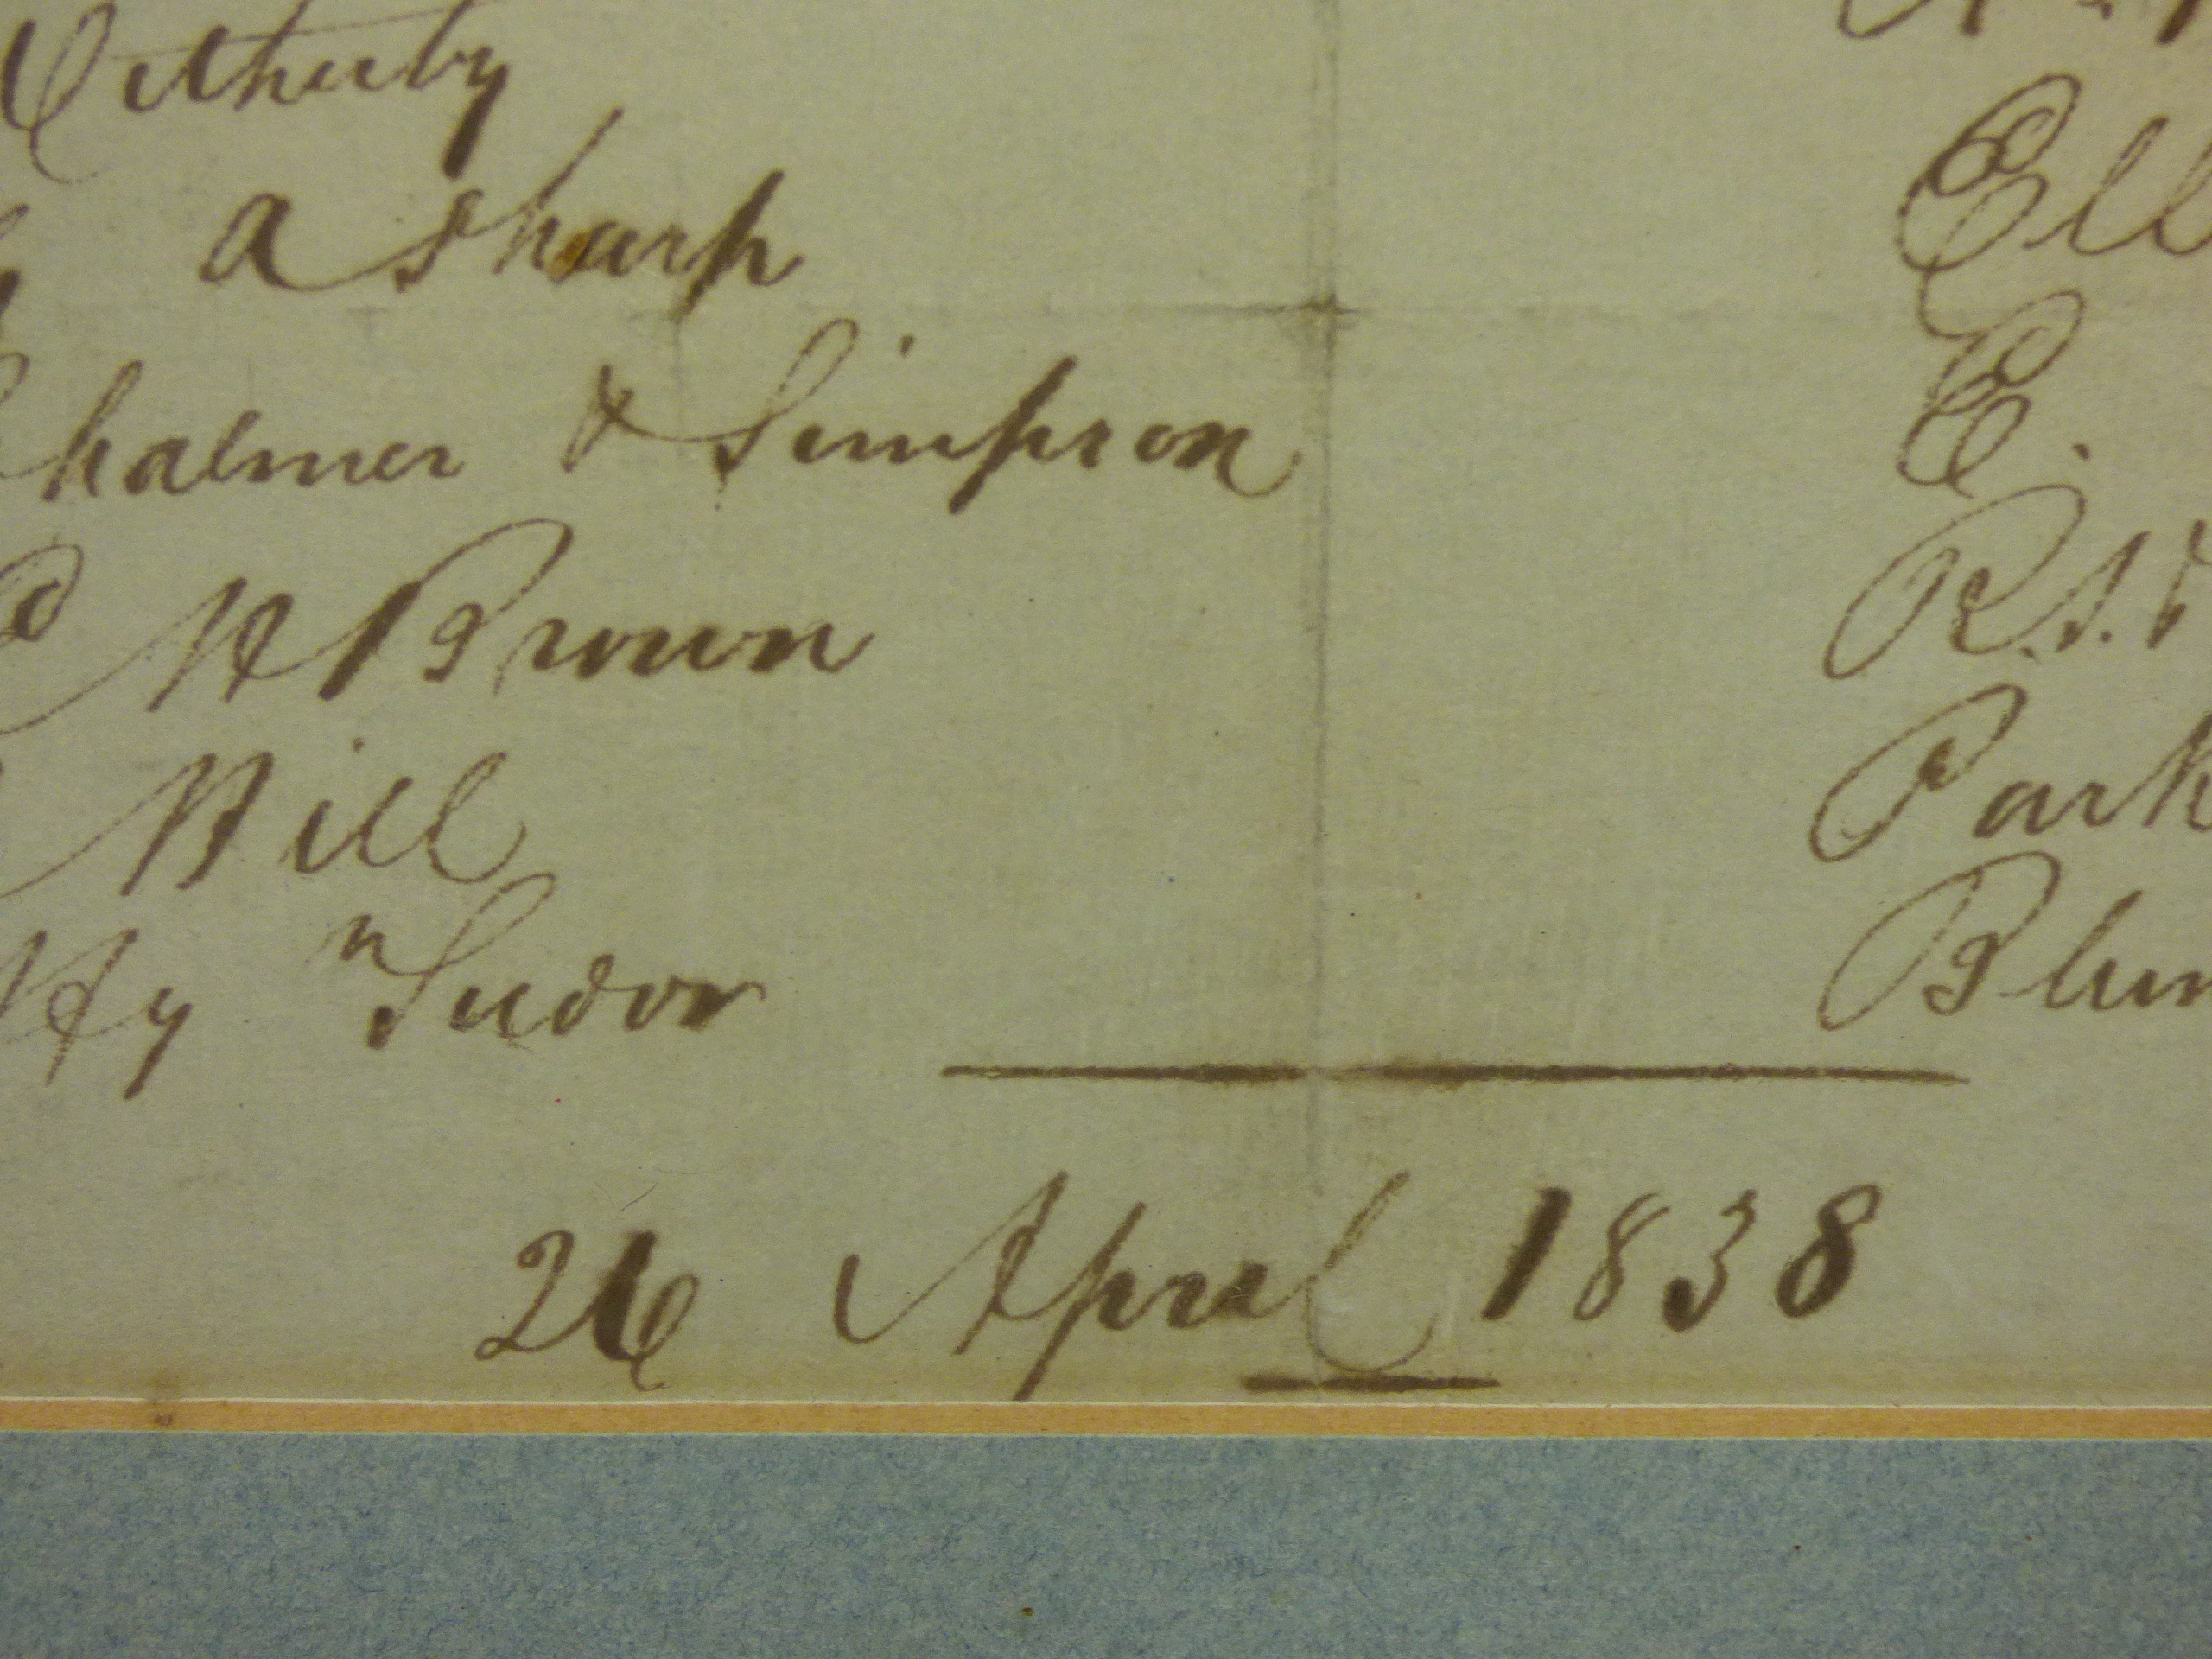 Wetherby
A Sharp
Chalmer & Simpson
H Brown
Hill
Hy Tudor
Ell
E.
R.S.
Park
Blun
26 April 1838